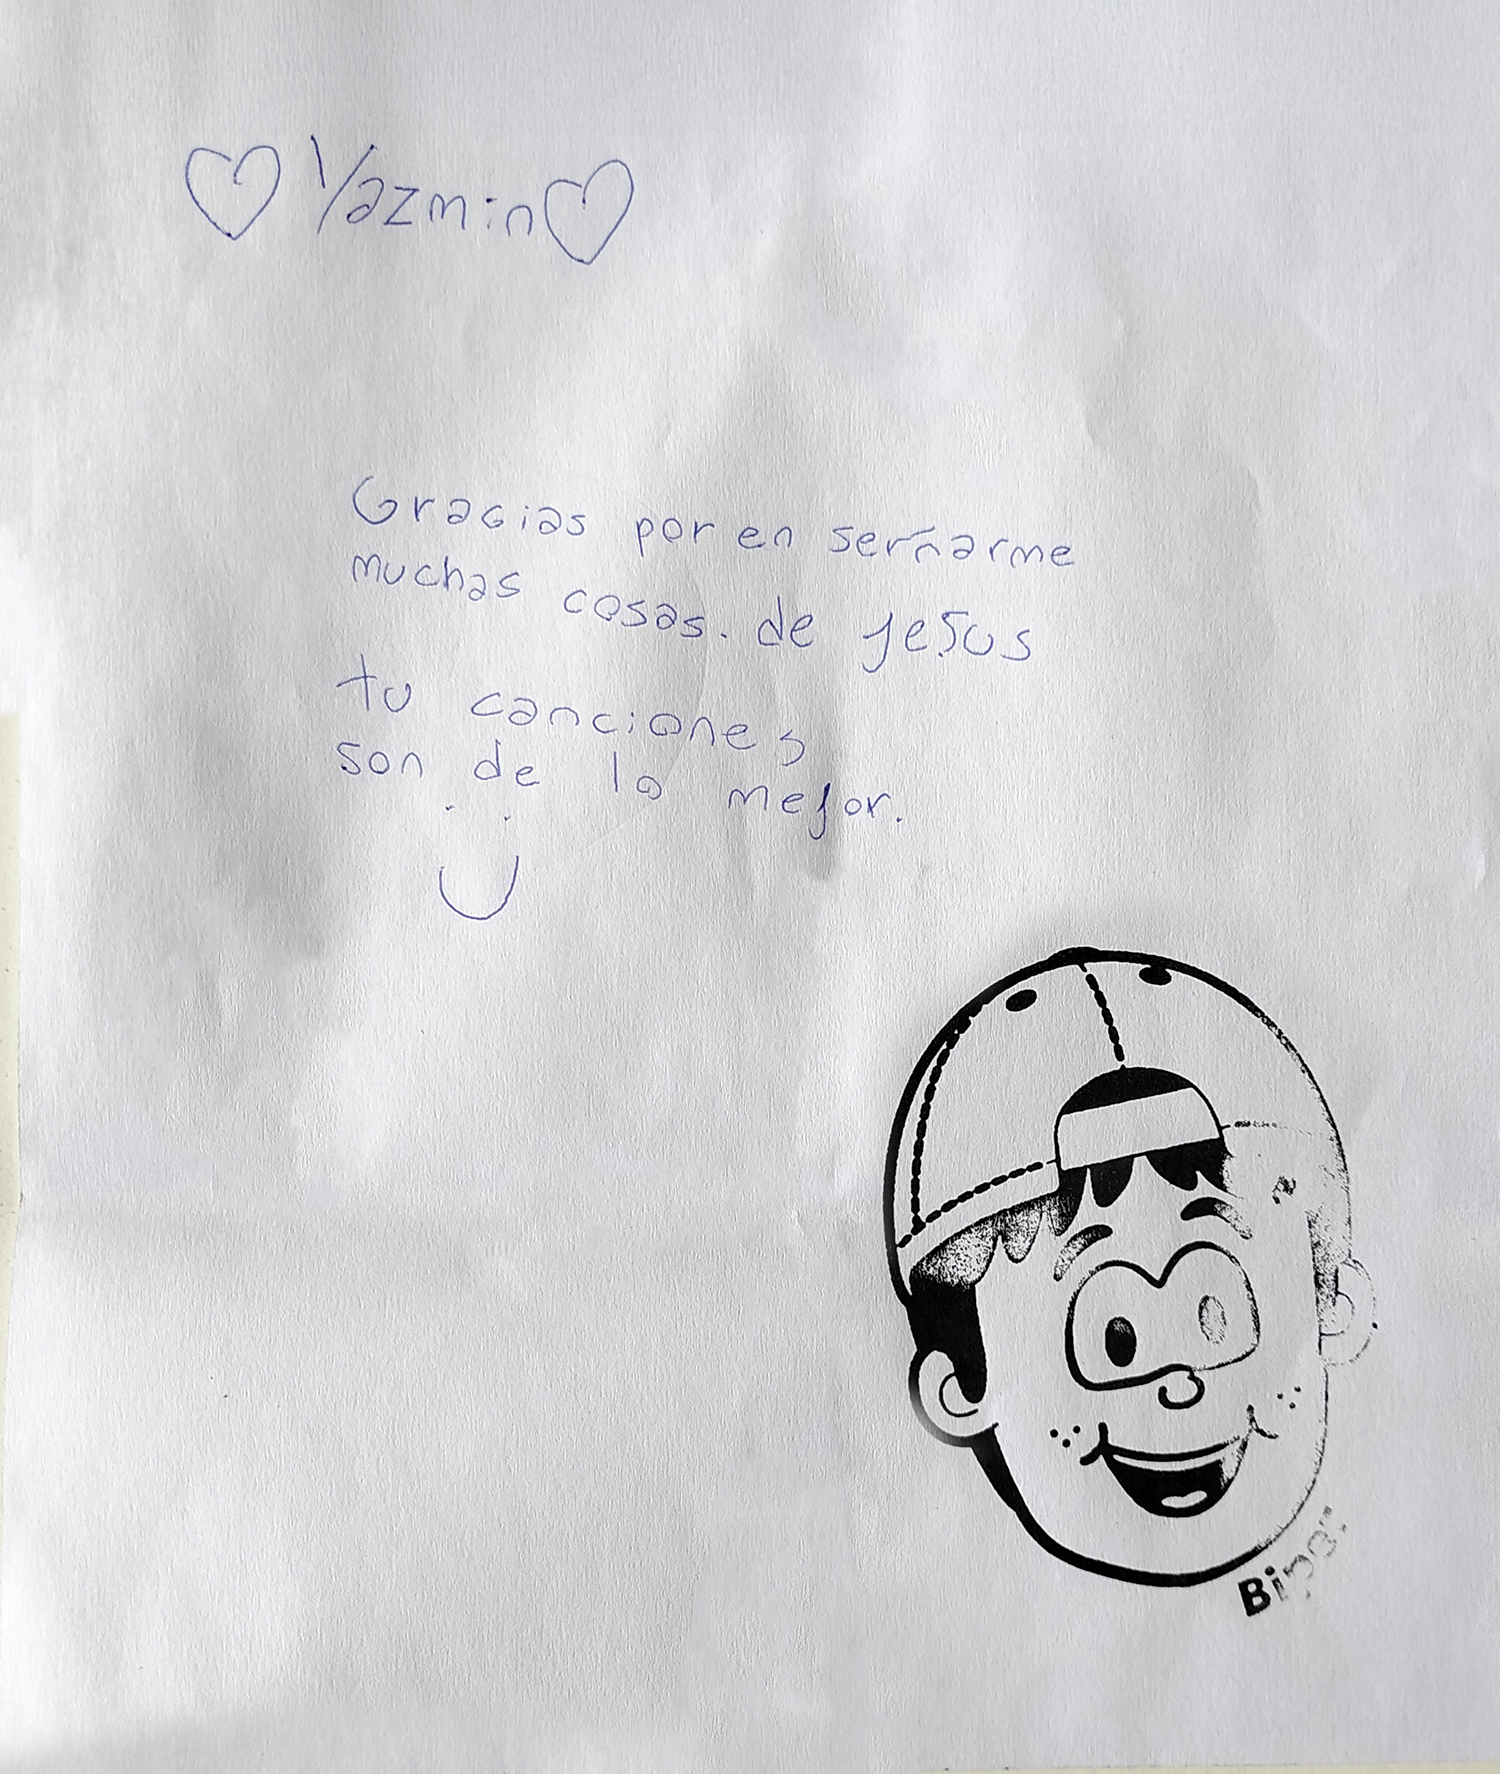 ♡ Yazmin ♡
Gracias por en serñarme
muchas cosas. de jesus
tu canciones
son de lo mejor.